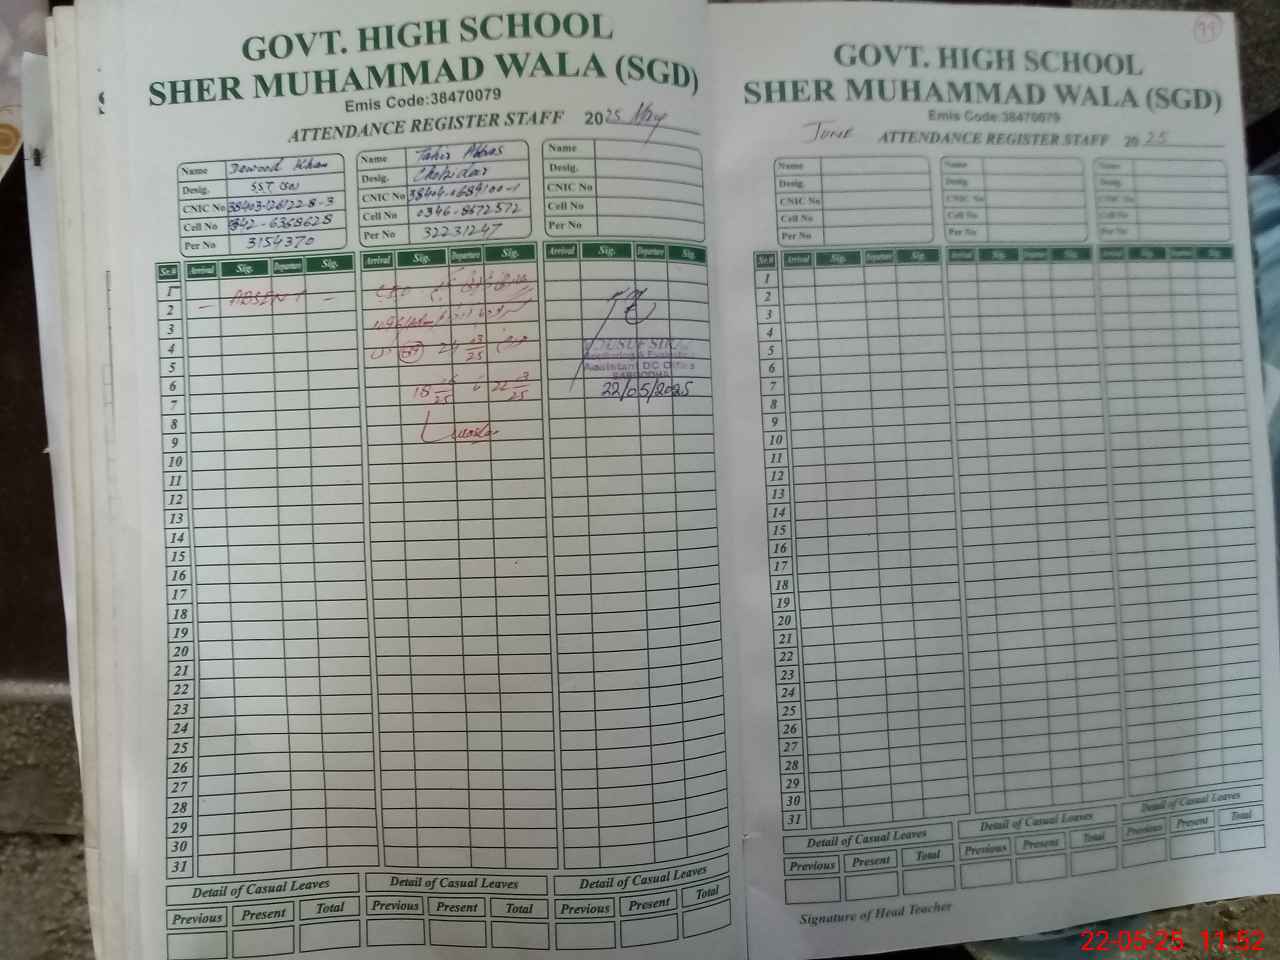 GOVT. HIGH SCHOOL
SHER MUHAMMAD WALA (SGD)
Emis Code:38470079
ATTENDANCE REGISTER STAFF 2025 May
Name Dawood Khan
Desig. SST
CNIC No
Cell No 0342-6358628
Per No 3154370
Name Tahir Abbas
Desig. Chokidar
CNIC No
Cell No 0346-8672572
Per No 32231247
Name
Desig.
CNIC No
Cell No
Per No
Sr.# Arrival Sig. Departure Sig. Arrival Sig. Departure Sig. Arrival Sig. Departure Sig.
1 - ABSENT -
2
3
4
5
6
22/05/2025
7
8
9
10
11
12
13
14
15
16
17
18
19
20
21
22
23
24
25
26
27
28
29
30
31
Assistant DC Office
SARGODHA
Detail of Casual Leaves Detail of Casual Leaves Detail of Casual Leaves
Previous Present Total Previous Present Total Previous Present Total
99
GOVT. HIGH SCHOOL
SHER MUHAMMAD WALA (SGD)
Emis Code:38470079
June ATTENDANCE REGISTER STAFF 2025
Name
Desig.
CNIC No
Cell No
Per No
Name
Desig.
CNIC No
Cell No
Per No
Name
Desig.
CNIC No
Cell No
Per No
Sr.# Arrival Sig. Departure Sig. Arrival Sig. Departure Sig. Arrival Sig. Departure Sig.
1
2
3
4
5
6
7
8
9
10
11
12
13
14
15
16
17
18
19
20
21
22
23
24
25
26
27
28
29
30
31
Detail of Casual Leaves Detail of Casual Leaves Detail of Casual Leaves
Previous Present Total Previous Present Total Previous Present Total
Signature of Head Teacher
22-05-25 11:52